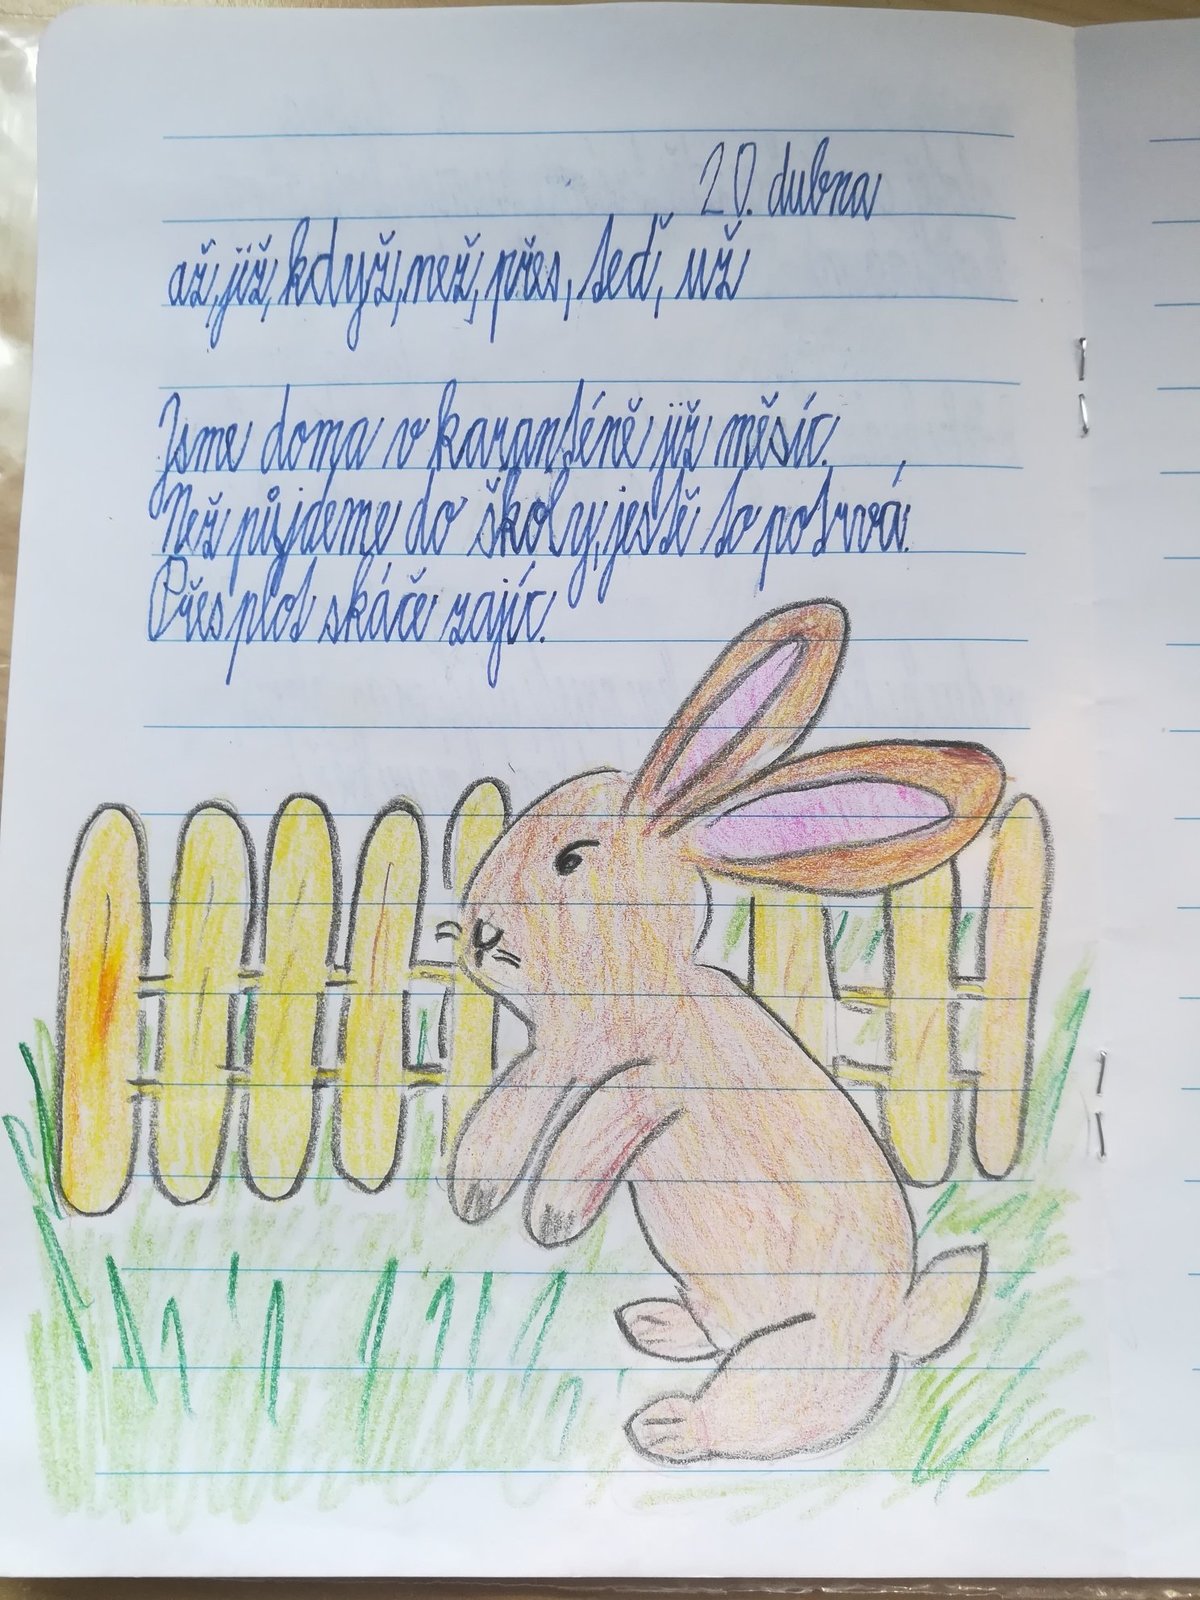 20. dubna
až, již, když, než, přes, teď, už
Jsme doma v karanténě již měsíc.
Než půjdeme do školy, jestě to potrvá.
Přes plot skáče zajíc.